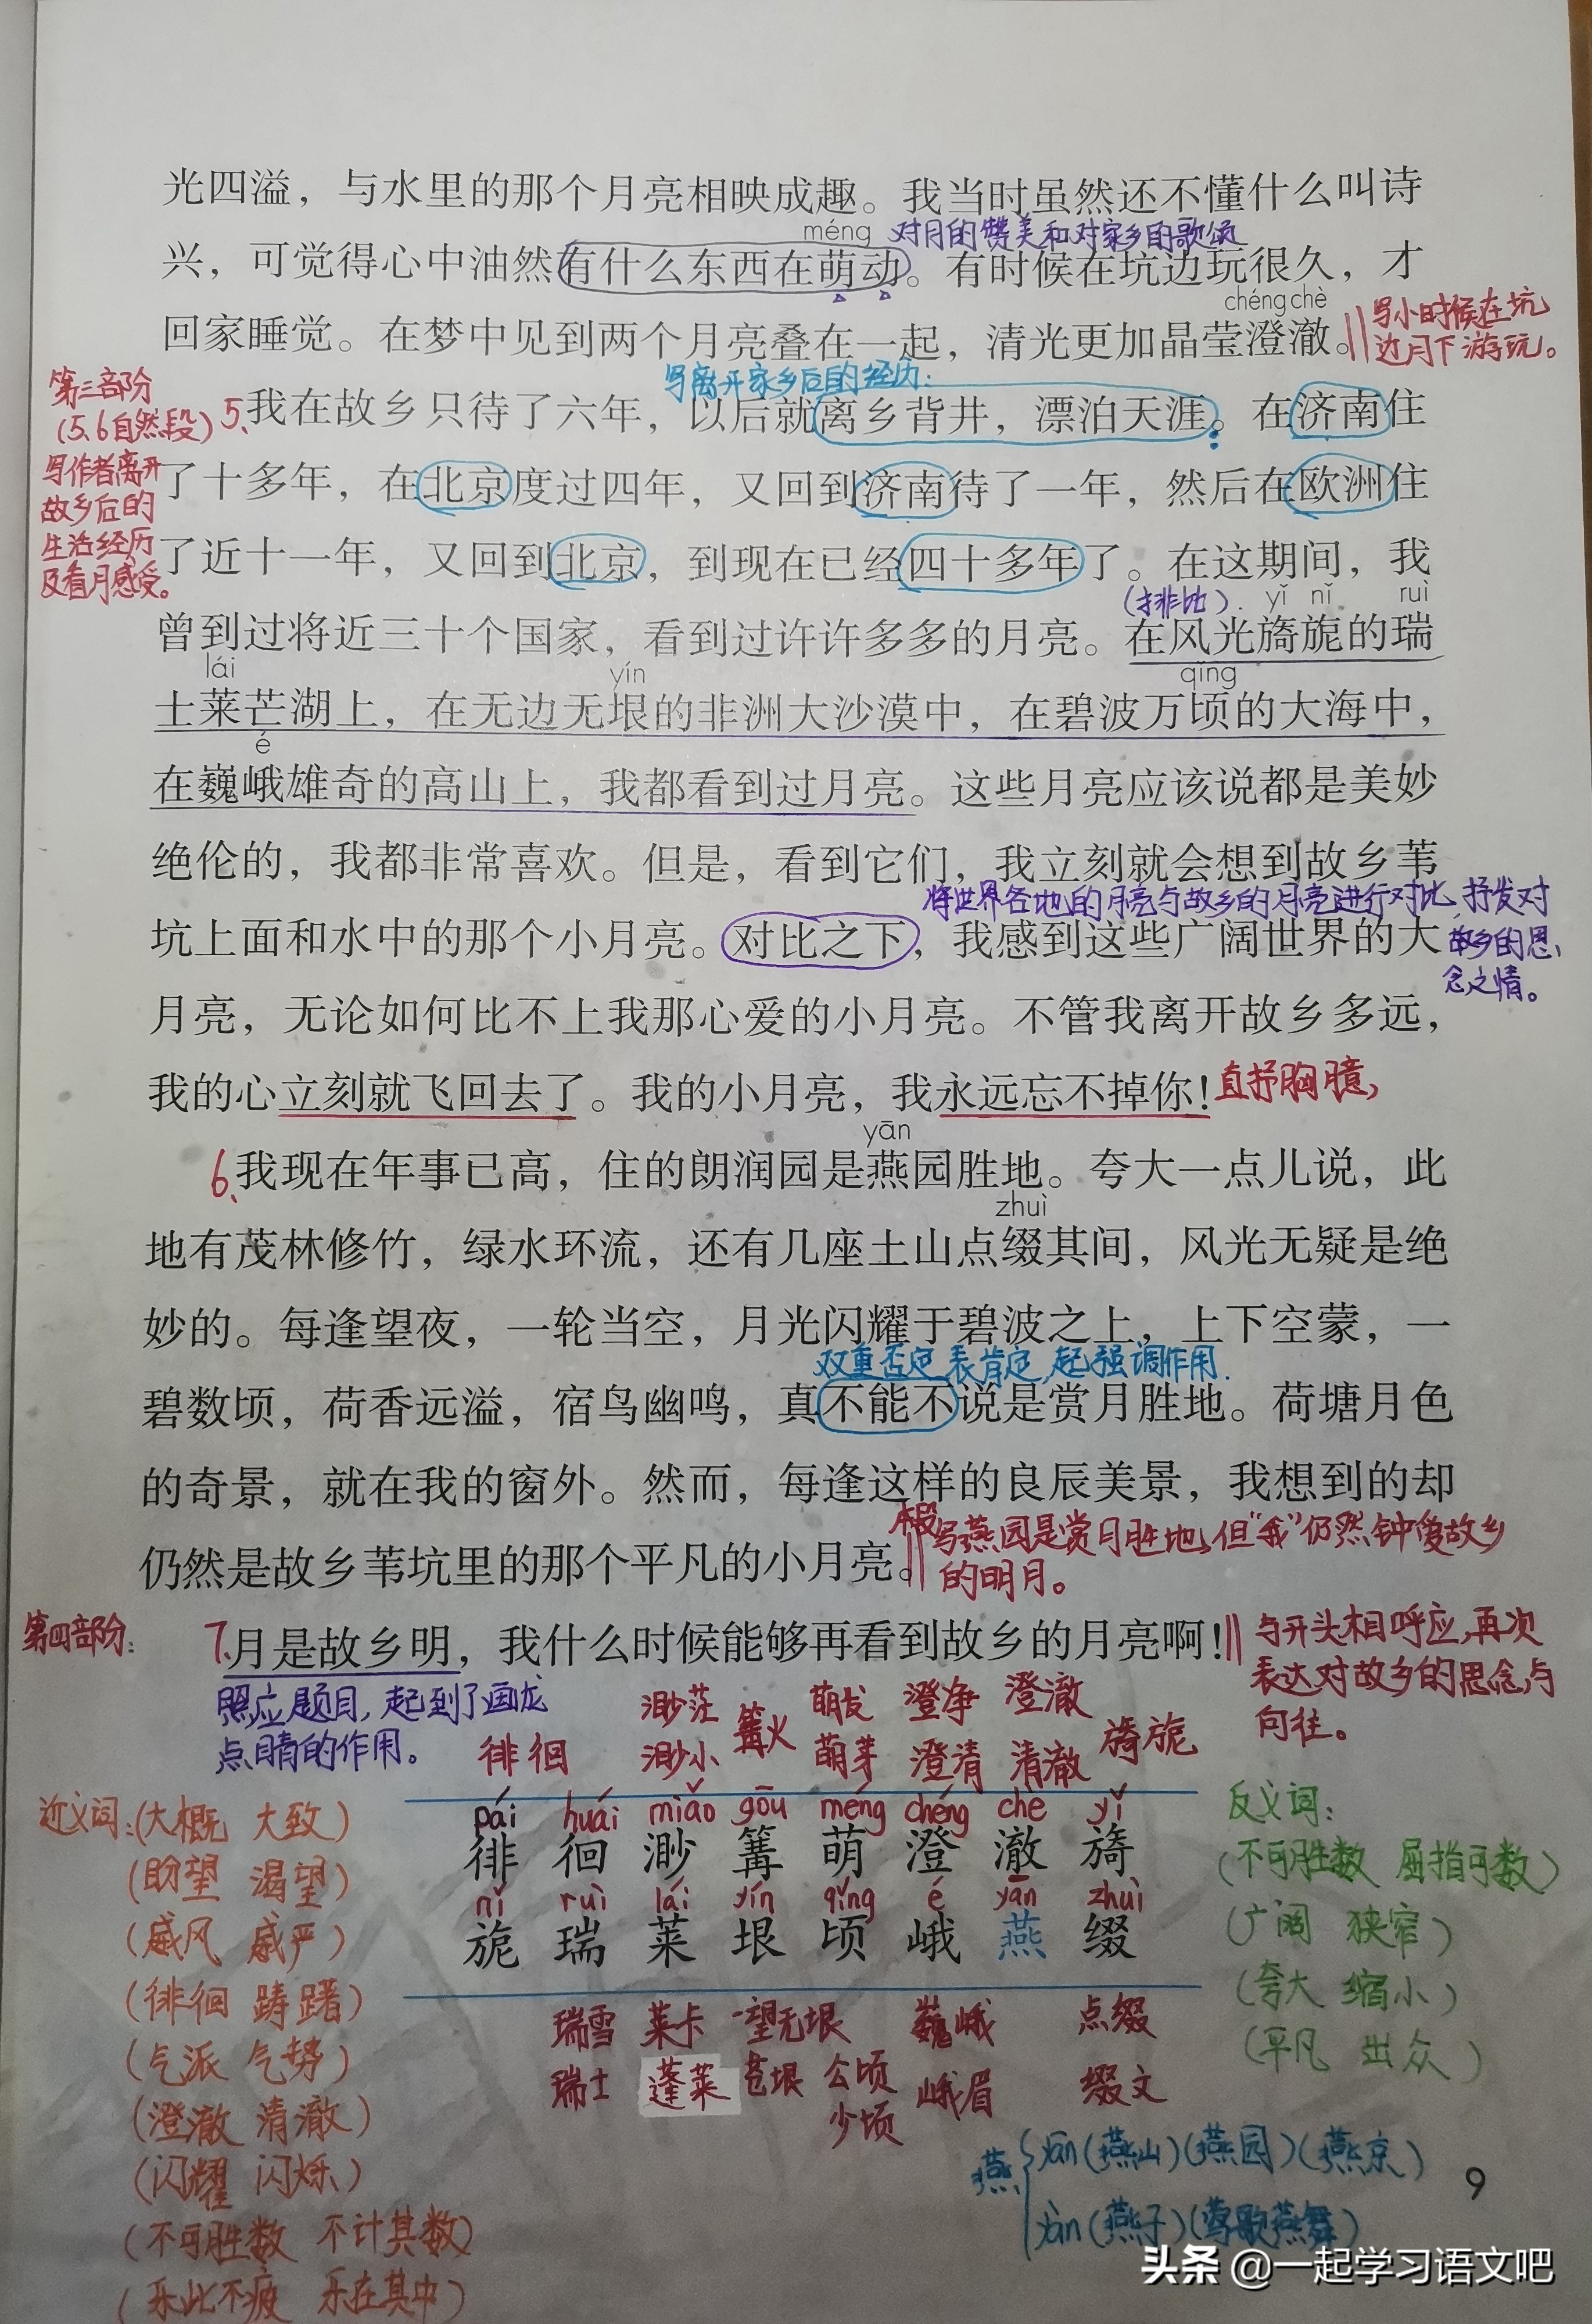 光四溢，与水里的那个月亮相映成趣。我当时虽然还不懂什么叫诗
méng 对月的赞美和对家乡的歌颂
兴，可觉得心中油然有什么东西在萌动。有时候在坑边玩很久，才
chéng chè
回家睡觉。在梦中见到两个月亮叠在一起，清光更加晶莹澄澈。
写小时候在坑
边月下游玩。
写离开家乡后的经历：
第三部分
(5、6自然段)
写作者离开
故乡后的
生活经历
及看月感受。
5、我在故乡只待了六年，以后就离乡背井，漂泊天涯。在济南住
了十多年，在北京度过四年，又回到济南待了一年，然后在欧洲住
了近十一年，又回到北京，到现在已经四十多年了。在这期间，我
(排比) yǐ nǐ ruì
曾到过将近三十个国家，看到过许许多多的月亮。在风光旖旎的瑞
lái yín qǐng
士莱芒湖上，在无边无垠的非洲大沙漠中，在碧波万顷的大海中，
é
在巍峨雄奇的高山上，我都看到过月亮。这些月亮应该说都是美妙
绝伦的，我都非常喜欢。但是，看到它们，我立刻就会想到故乡苇
将世界各地的月亮与故乡的月亮进行对比，抒发对
故乡的思
念之情。
坑上面和水中的那个小月亮。对比之下，我感到这些广阔世界的大
月亮，无论如何比不上我那心爱的小月亮。不管我离开故乡多远，
我的心立刻就飞回去了。我的小月亮，我永远忘不掉你！直抒胸臆，
yān
6、我现在年事已高，住的朗润园是燕园胜地。夸大一点儿说，此
zhuì
地有茂林修竹，绿水环流，还有几座土山点缀其间，风光无疑是绝
妙的。每逢望夜，一轮当空，月光闪耀于碧波之上，上下空蒙，一
双重否定表肯定，起强调作用.
碧数顷，荷香远溢，宿鸟幽鸣，真不能不说是赏月胜地。荷塘月色
的奇景，就在我的窗外。然而，每逢这样的良辰美景，我想到的却
仍然是故乡苇坑里的那个平凡的小月亮。
本段写燕园是赏月胜地，但“我”仍然钟爱故乡
的明月。
第四部分：
7、月是故乡明，我什么时候能够再看到故乡的月亮啊！
与开头相呼应，再次
表达对故乡的思念与
向往。
照应题目，起到了画龙
点睛的作用。
渺茫 篝火 萌发 澄净 澄澈 旖旎
徘徊 渺小 萌芽 澄清 清澈
pái huái miǎo gōu méng chéng chè yǐ
徘 徊 渺 篝 萌 澄 澈 旖
nǐ ruì lái yín qǐng é yān zhuì
旎 瑞 莱 垠 顷 峨 燕 缀
瑞雪 莱卡 一望无垠 巍峨 点缀
瑞士 蓬莱 苍垠 公顷 峨眉 缀文
少顷
近义词：(大概 大致)
(盼望 渴望)
(威风 威严)
(徘徊 踌躇)
(气派 气势)
(澄澈 清澈)
(闪耀 闪烁)
(不可胜数 不计其数)
(乐此不疲 乐在其中)
反义词：
(不可胜数 屈指可数)
(广阔 狭窄)
(夸大 缩小)
(平凡 出众)
燕 yān (燕山)(燕园)(燕京)
yàn (燕子)(莺歌燕舞)
9
头条 @一起学习语文吧